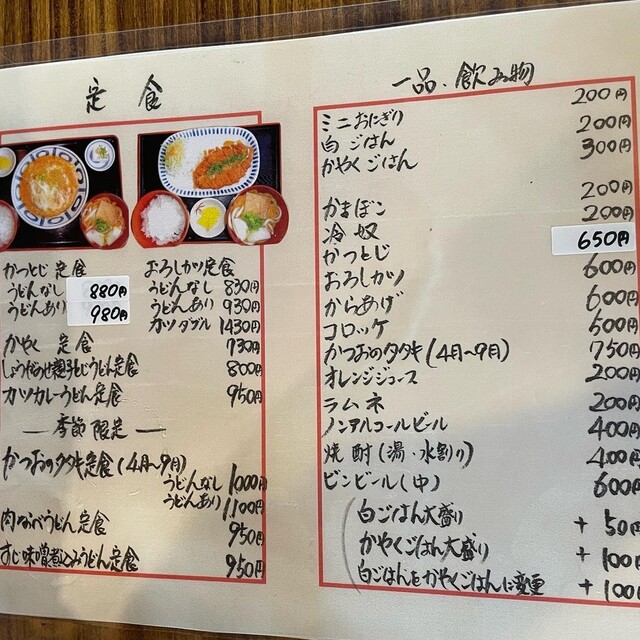 定食
かつとじ定食
うどんなし 880円
うどんあり 980円
おろしカツ定食
うどんなし 830円
うどんあり 930円
カツダブル 1430円
かやく 定食 730円
しょうがあんかけ親子とじうどん定食 800円
カツカレーうどん定食 950円
— 季節限定 —
かつおのタタキ定食(4月〜9月)
うどんなし 1000円
うどんあり 1100円
肉なべうどん定食 950円
すじ味噌煮込みうどん定食 950円
一品、飲み物
ミニおにぎり 200円
白ごはん 200円
かやくごはん 300円
かまぼこ 200円
冷奴 200円
かつとじ 650円
おろしカツ 600円
からあげ 600円
コロッケ 500円
かつおのタタキ(4月〜9月) 750円
オレンジジュース 200円
ラムネ 200円
ノンアルコールビール 400円
焼酎(湯・水割り) 400円
ビンビール(中) 600円
白ごはん大盛り +50円
かやくごはん大盛り +100円
白ごはんをかやくごはんに変更 +100円